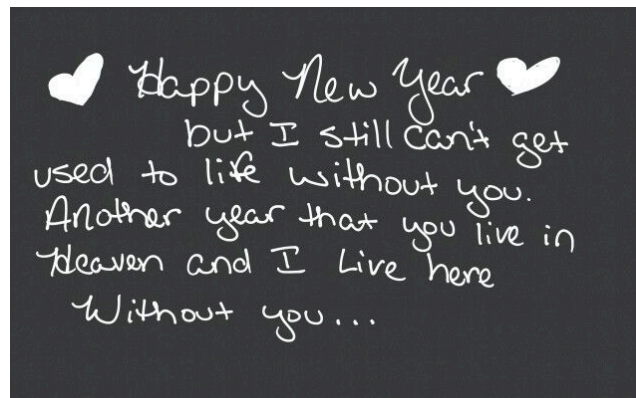 Happy New Year
but I still can't get
used to life without you.
Another year that you live in
Heaven and I Live here
Without you...